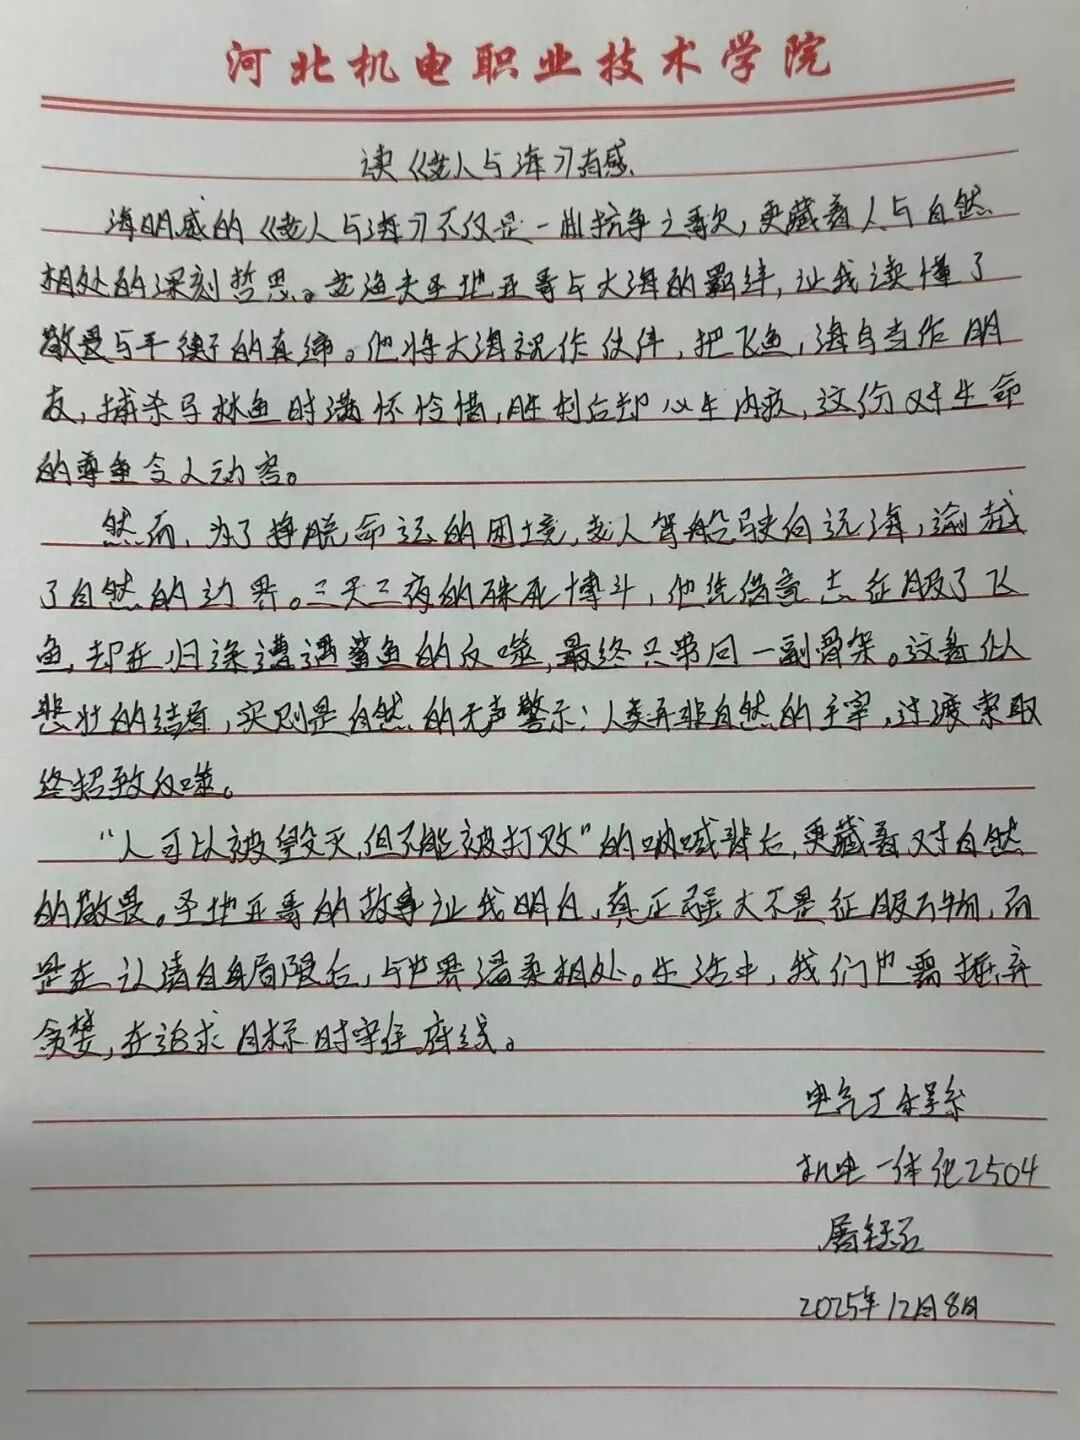 河北机电职业技术学院
读《老人与海》有感
海明威的《老人与海》不仅是一曲抗争之歌，更藏着人与自然
相处的深刻哲思。老渔夫圣地亚哥与大海的羁绊，让我读懂了
敬畏与平衡的真谛。他将大海视作伙伴，把飞鱼，海鸟当作朋
友，捕杀马林鱼时满怀怜惜，胜利后却心生内疚，这份对生命
的尊重令人动容。
然而，为了挣脱命运的困境，老人驾船驶向远海，逾越
了自然的边界。三天三夜的殊死博斗，他凭借意志征服了飞
鱼，却在归途遭遇鲨鱼的反噬，最终只带回一副骨架。这看似
悲壮的结局，实则是自然的无声警示：人类并非自然的主宰，过渡索取
终招致反噬。
“人可以被毁灭，但不能被打败”的呐喊背后，更藏着对自然
的敬畏。圣地亚哥的故事让我明白，真正强大不是征服万物，而
是在认清自身局限后，与世界温柔相处。生活中，我们也需摒弃
贪婪，在追求目标时守住底线。
电气工程系
机电一体化2504
2025年12月8日